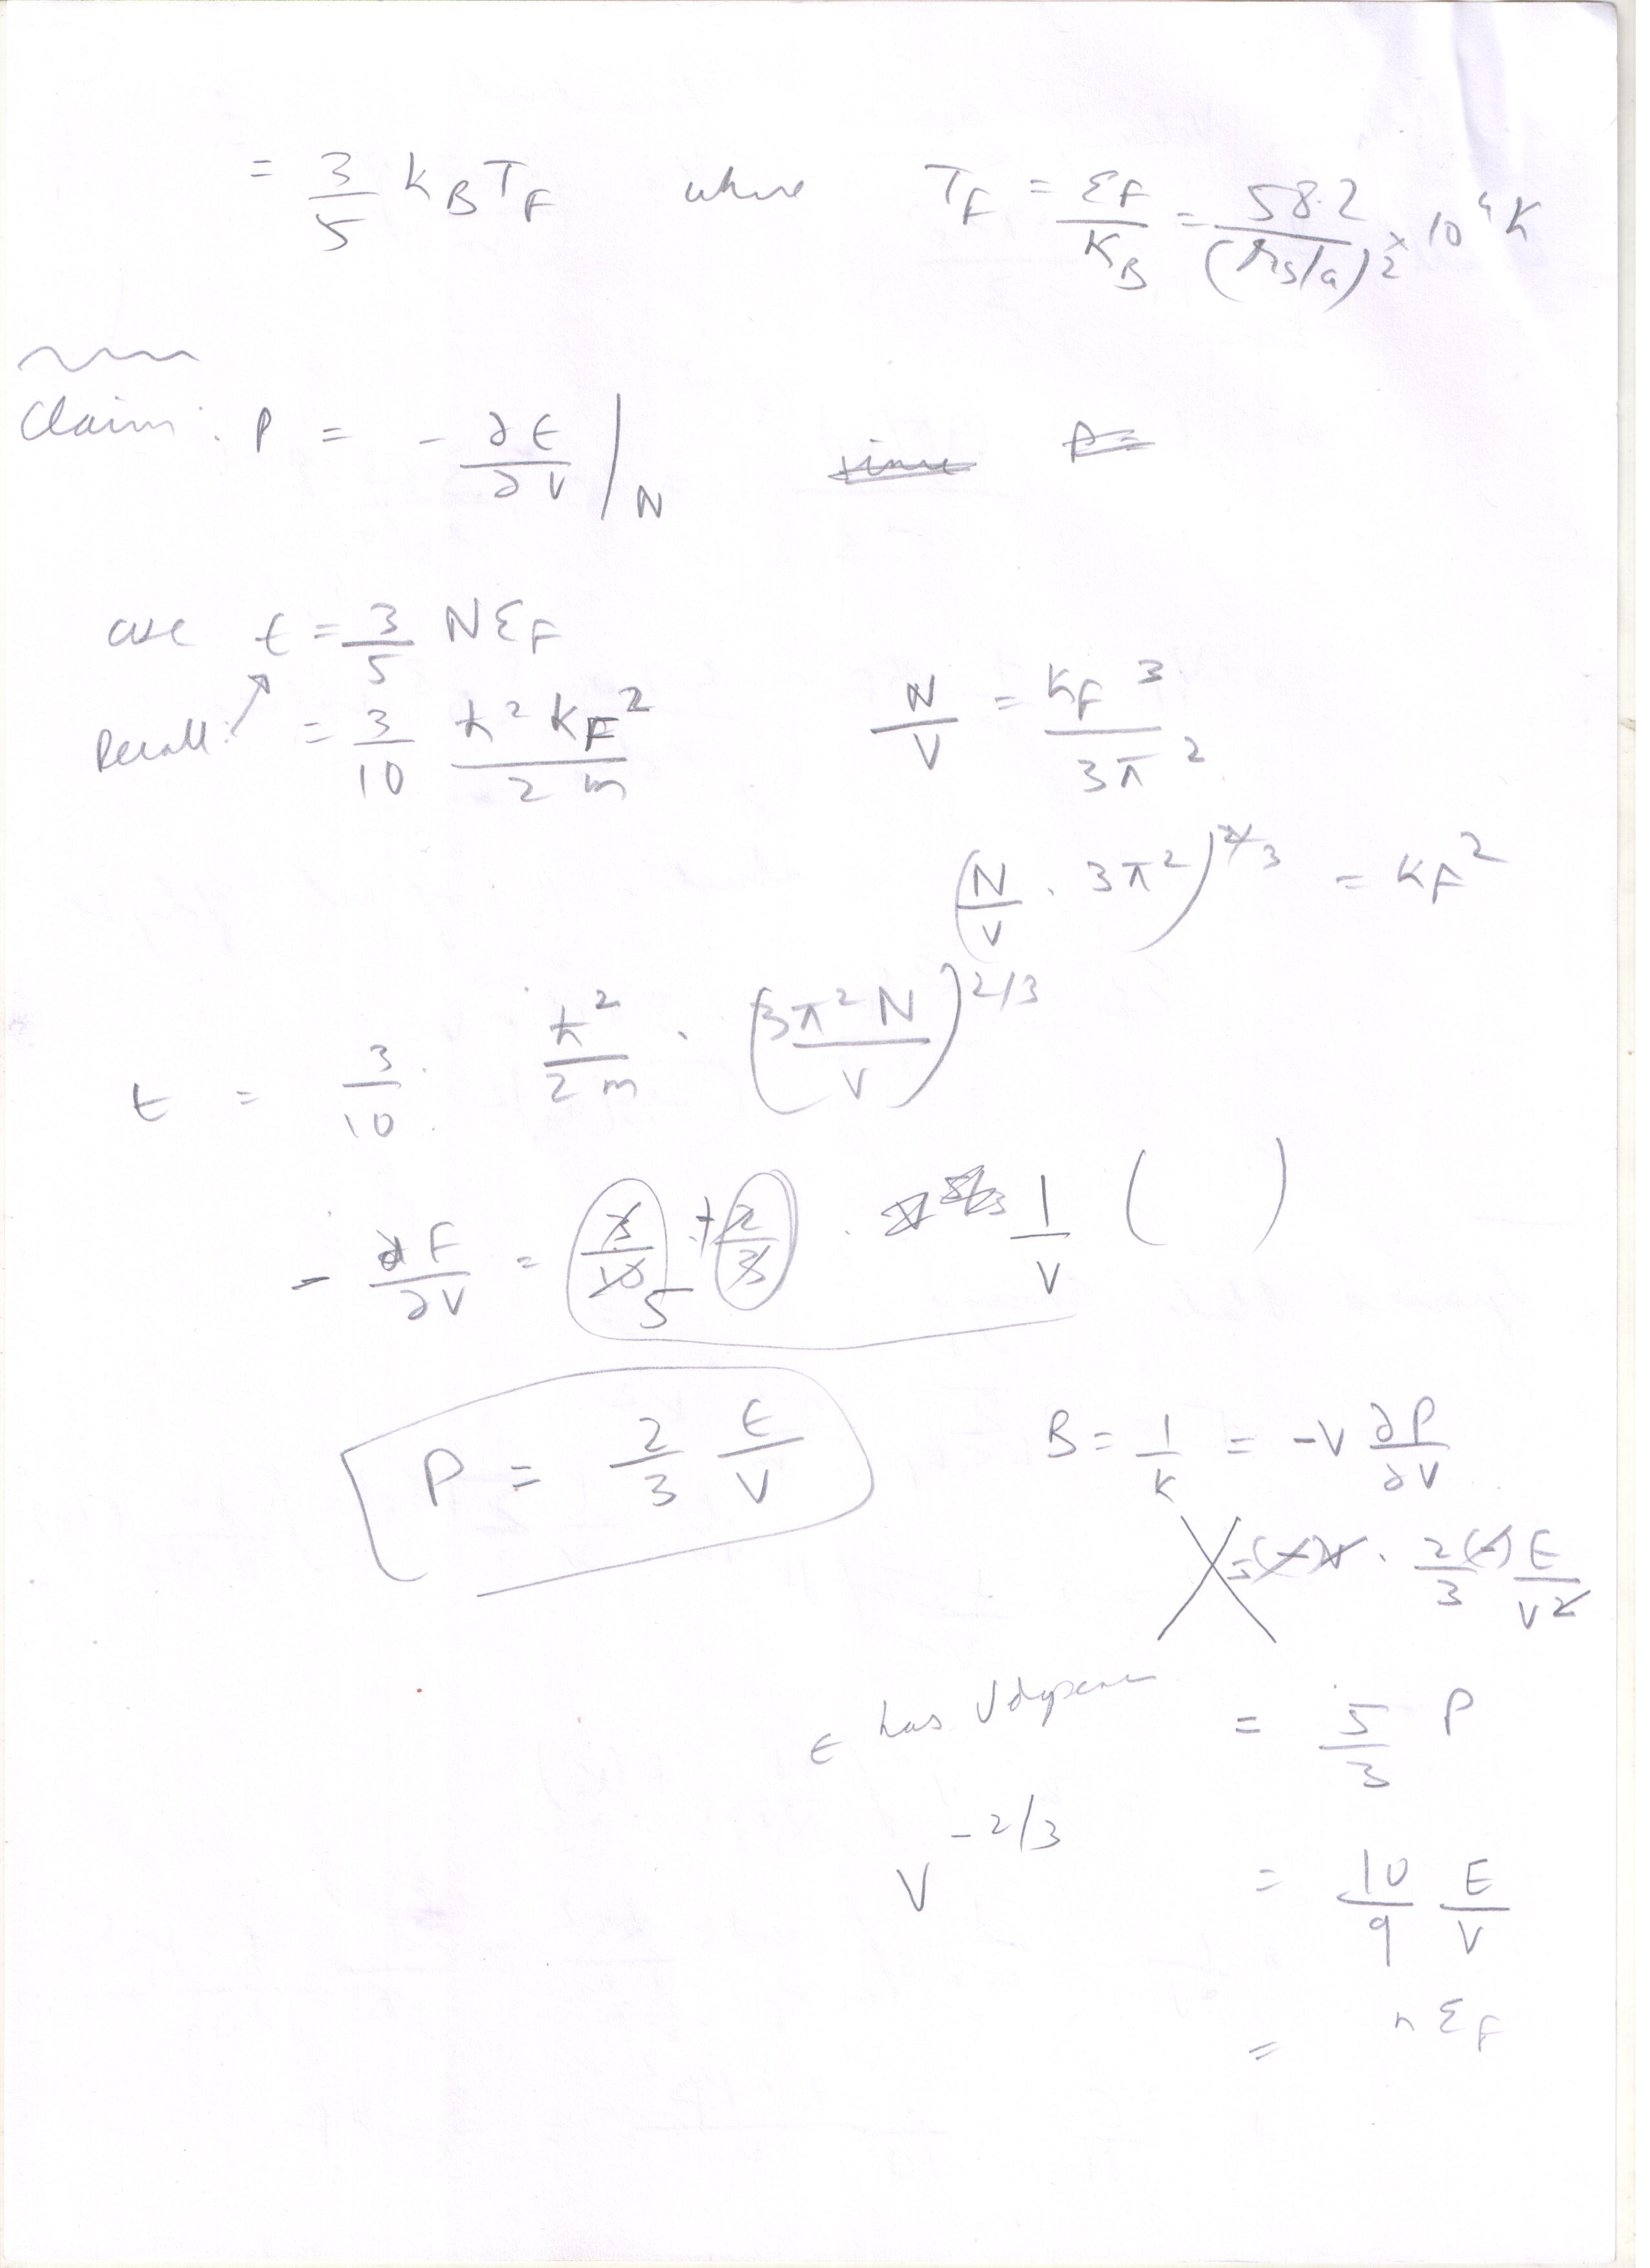 = 3/5 K_B T_F where T_F = ε_F/K_B = 58.2/(r_s/a)^2 × 10^4 K
Claim: P = - ∂E/∂V |_N
use E = 3/5 N ε_F
Recall: = 3/10 ħ^2 k_F^2 / 2m N/V = k_F^3 / 3π^2
(N/V · 3π^2)^2/3 = k_F^2
E = 3/10 · ħ^2/2m · (3π^2 N / V)^2/3
- ∂E/∂V = 3/10 5 · + 2/3 · 1/V ( )
P = 2/3 E/V B = 1/K = -V ∂P/∂V
= (-)V · 2/3 (-) E/V^2
E has V depen = 5/3 P
V^-2/3 = 10/9 E/V
= n ε_F